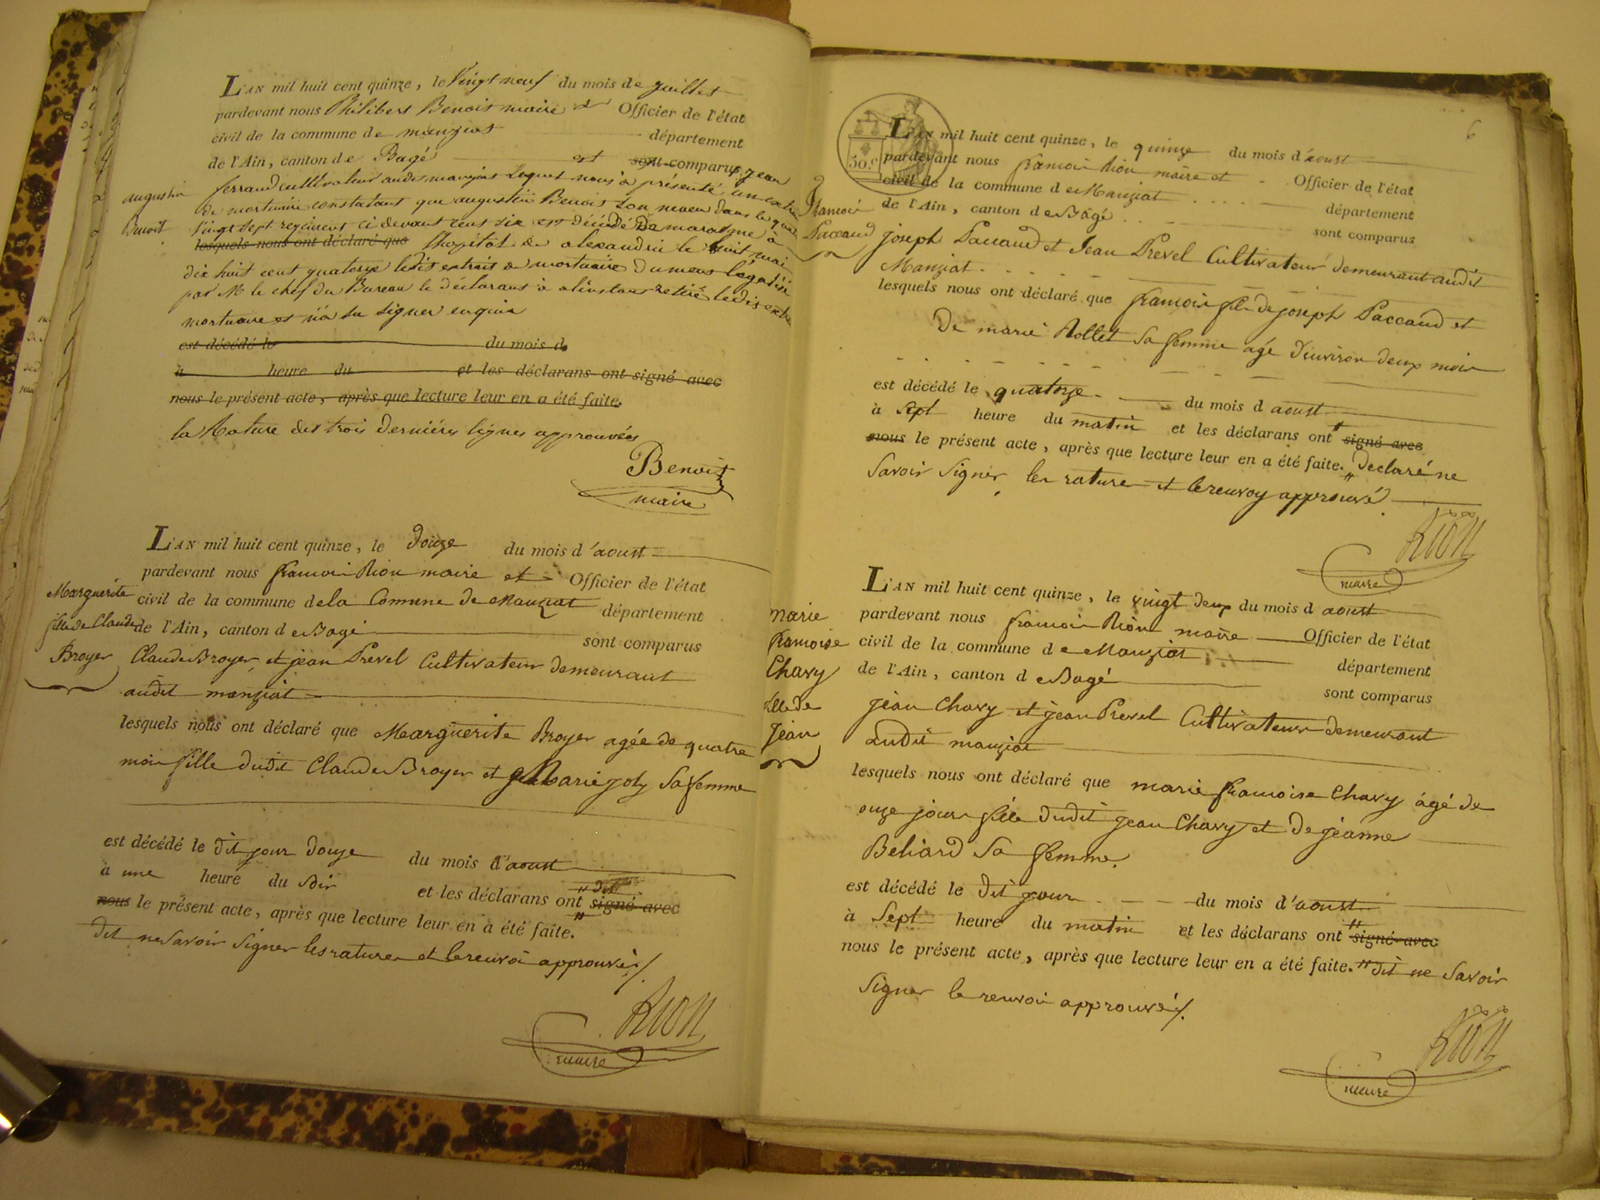 L'AN mil huit cent quinze, le Vingt neuf du mois de juillet
pardevant nous Philibert Benoit maire et Officier de l'état
civil de la commune de manziat département
de l'Ain, canton de Bagé est sont comparus jean
ferrand cultivateur audit manziat lequel nous a présenté un extrait
de mortuaire constatant que augustin Benoit son neveu dans le quel
Vingt sept regiment ci devant cent six est décédé De marasme à
lesquels nous ont déclaré que l'hopital de alexandrie le huit mai
dix huit cent quatorze ledit extrait de mortuaire dument légalisé
par Mr le chef du Bureau le declarant a à l'instant retiré ledit extrait
mortuaire et n'a su signer enquis
est décédé le du mois d
à heure du et les déclarans ont signé avec
nous le présent acte, après que lecture leur en a été faite.
la Rature des trois dernières lignes approuvées
Benoit
maire
augustin
Benoit
L'AN mil huit cent quinze, le douze du mois d'aoust
pardevant nous francois Rion maire et Officier de l'état
civil de la commune de la Comune de Manziat département
de l'Ain, canton de Bagé sont comparus
Claude Broyer et jean Prevel Cultivateur demeurant
audit manziat
lesquels nous ont déclaré que Marguerite Broyer agée de quatre
mois fille dudit Claude Broyer et Marie joly Sa femme
est décédé le dit jour douze du mois d'aoust
à une heure du Soir et les déclarans ont signé avec
nous le présent acte, après que lecture leur en a été faite.
dit ne Savoir Signer les rature et le renvoi approuvé
Rion
maire
Marguerite
fille de Claude
Broyer
6
50 c
L'AN mil huit cent quinze, le quinze du mois d'aoust
pardevant nous francois Rion maire et Officier de l'état
civil de la commune de Manziat département
de l'Ain, canton de Bagé sont comparus
joseph Paccaud et Jean Prevel Cultivateur demeurant audit
Manziat
lesquels nous ont déclaré que francois fils de joseph Paccaud et
De marie Rollet Sa femme agé d'environ deux mois
est décédé le quatorze du mois d aoust
à Sept heure du matin et les déclarans ont signé avec
nous le présent acte, après que lecture leur en a été faite. declaré ne
Savoir Signer les rature et le renvoy approuvé
Rion
maire
francois
Paccaud
L'AN mil huit cent quinze, le vingt deux du mois d aoust
pardevant nous francois Rion maire Officier de l'état
civil de la commune de Manziat département
de l'Ain, canton de Bagé sont comparus
jean Chavy et jean Prevel Cultivateur demeurant
audit manziat
lesquels nous ont déclaré que marie francoise Chavy agé de
onze jour fille dudit jean Chavy et De jeanne
Beliard Sa femme
est décédé le dit jour du mois d'aoust
à Sept heure du matin et les déclarans ont signé avec
nous le présent acte, après que lecture leur en a été faite. dit ne Savoir
Signer le renvoi approuvé
Rion
maire
marie
francoise
Chavy
fille de
jean